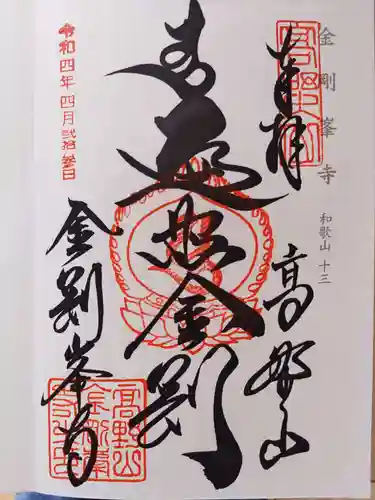 金剛峯寺
和歌山 十三
奉拝
高野山
高野山
遍照金剛
金剛峯寺
令和四年四月弐拾参日
高野山
金剛峯
寺之印